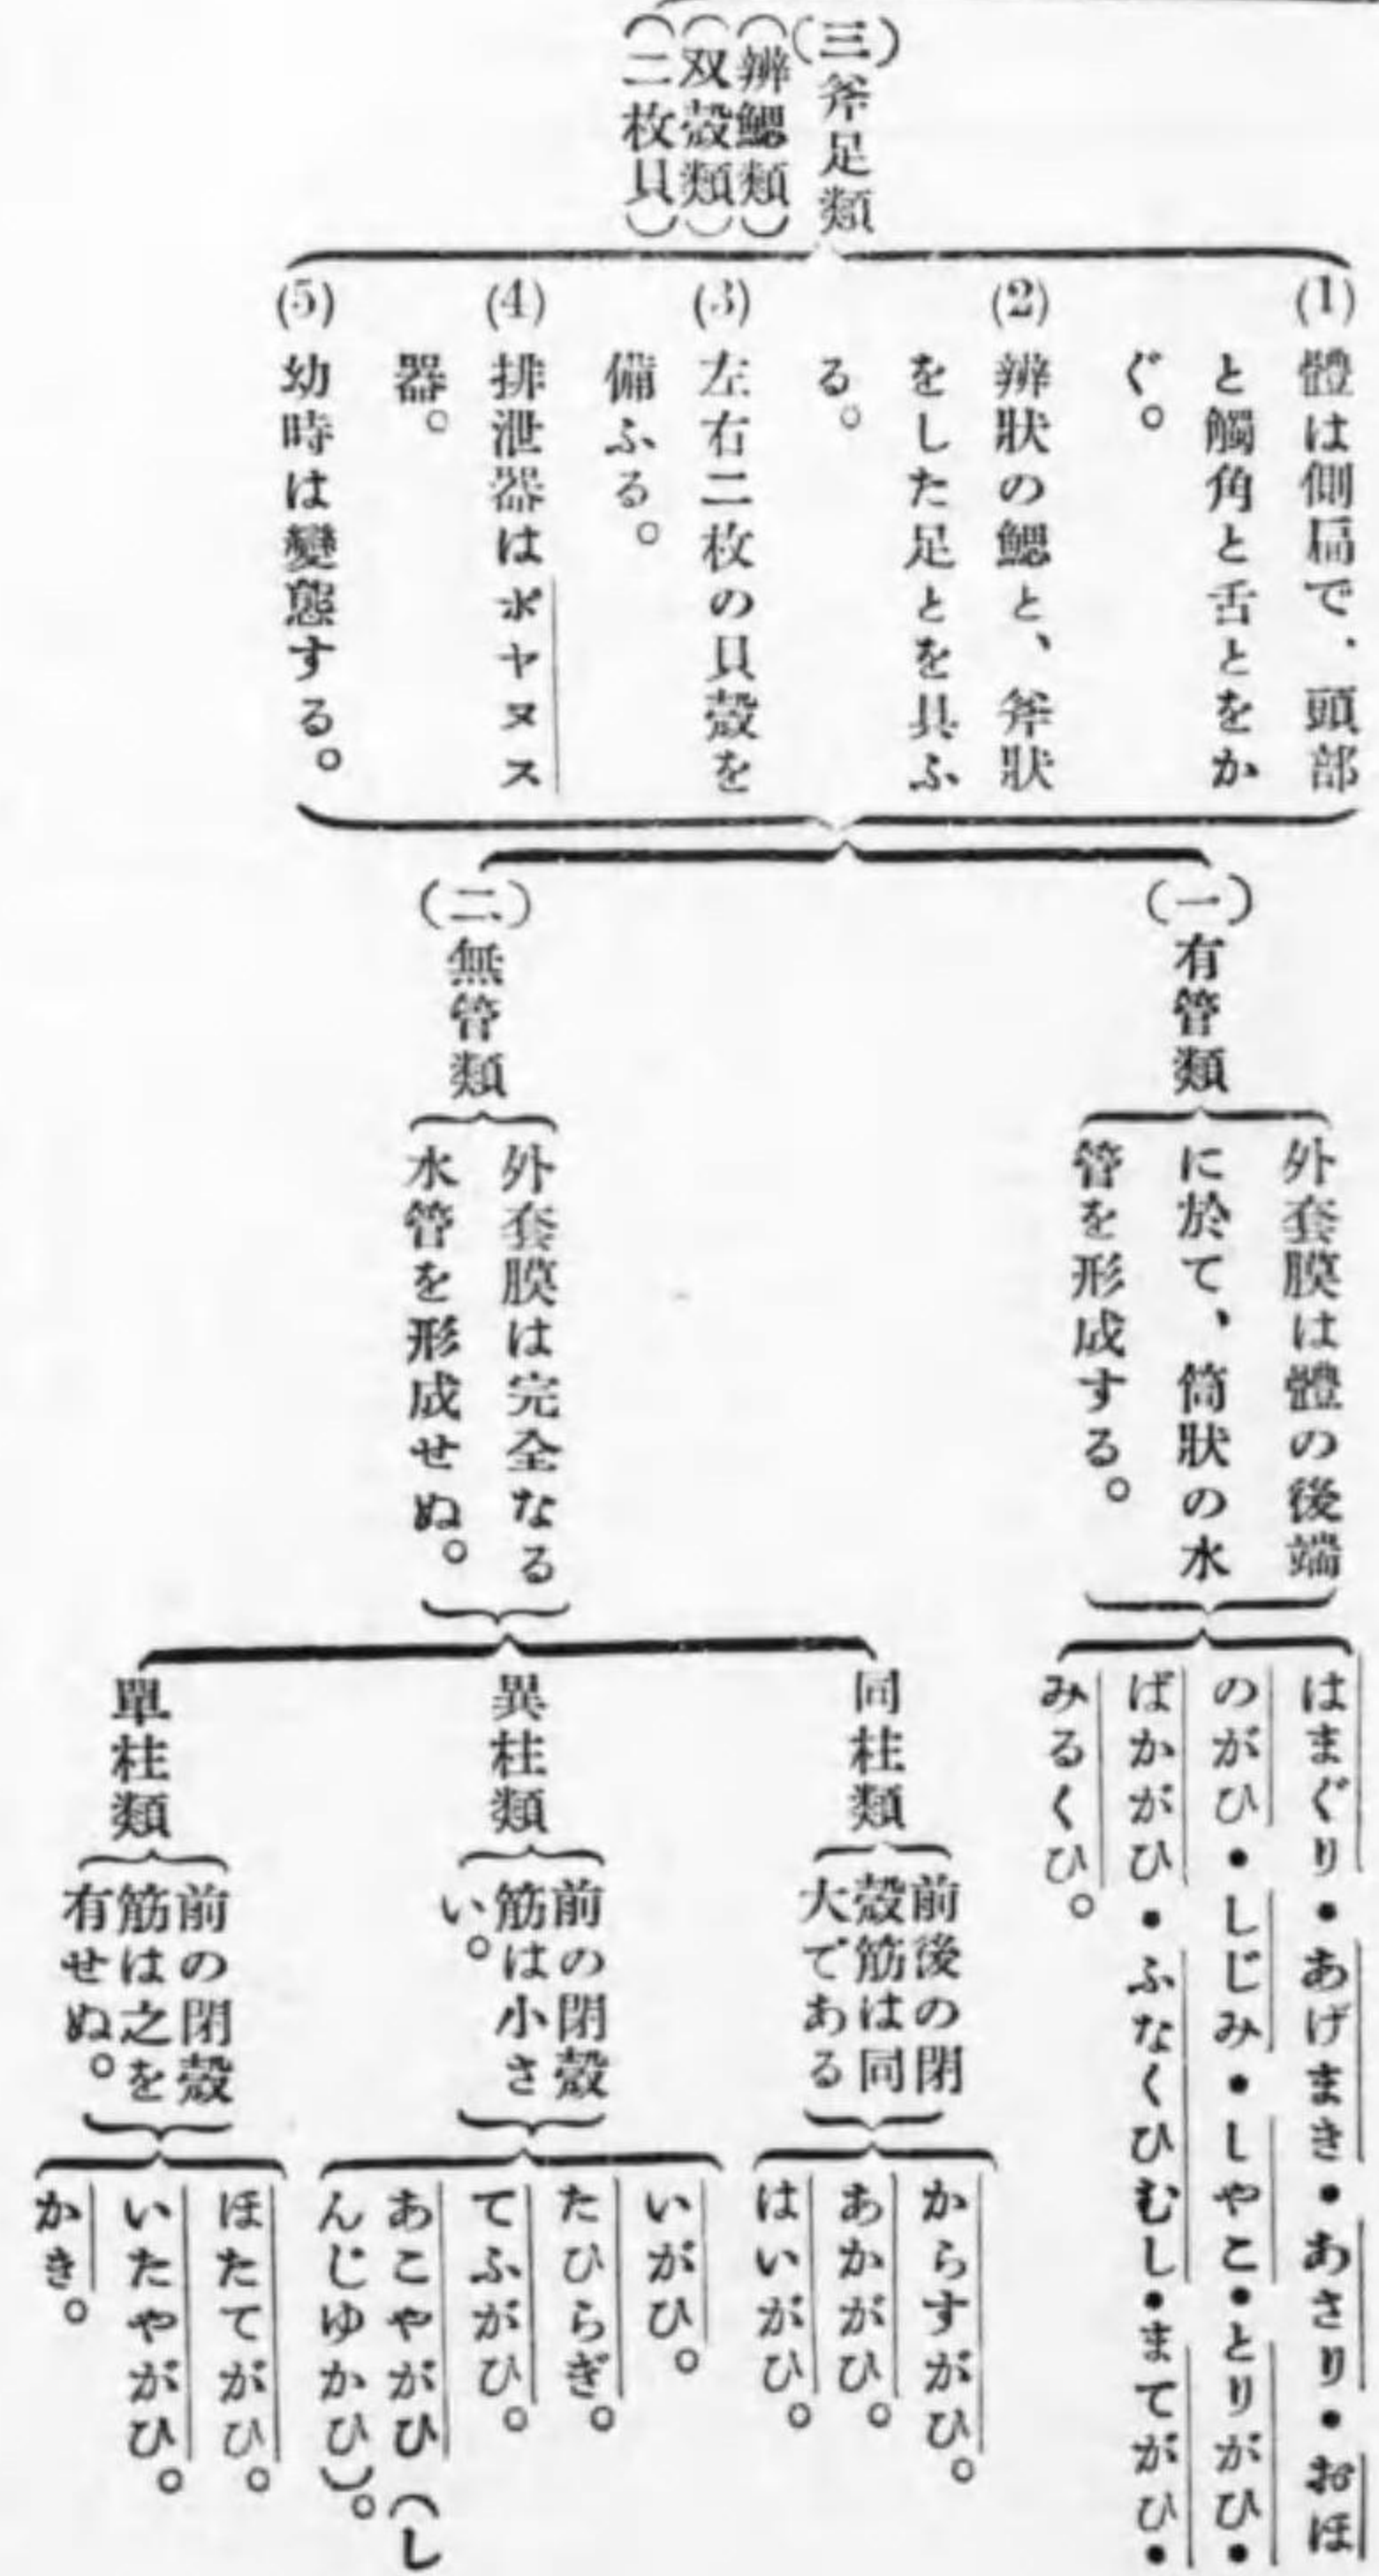 (三)斧足類
(辨鰓類)
(双殼類)
(二枚貝)
(1) 體は側扁で、頭部
と觸角と舌とをか
ぐ。
(2) 辨狀の鰓と、斧狀
をした足とを具ふ
る。
(3) 左右二枚の貝殼を
備ふる。
(4) 排泄器はボヤヌス
器。
(5) 幼時は變態する。
(一)有管類
外套膜は體の後端
に於て、筒狀の水
管を形成する。
はまぐり・あげまき・あさり・おほ
のがひ・しじみ・しやこ・とりがひ・
ばかがひ・ふなくひむし・まてがひ・
みるくひ。
(二)無管類
外套膜は完全なる
水管を形成せぬ。
同柱類
前後の閉
殼筋は同
大である
からすがひ。
あかがひ。
はいがひ。
異柱類
前の閉殼
筋は小さ
い。
いがひ。
たひらぎ。
てふがひ。
あこやがひ(し
んじゆかひ)。
單柱類
前の閉殼
筋は之を
有せぬ。
ほたてがひ。
いたやがひ。
かき。